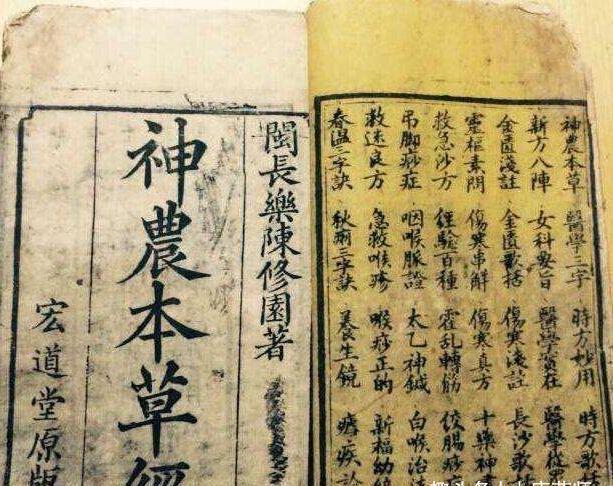 神農本草 醫學三字 時方妙用 時方歌
新方八陣 女科要旨 醫學實在 醫學從
金匱淺註 金匱歌括 傷寒淺註 長沙歌
靈樞素問 傷寒串解 傷寒真方 十藥神
救急沙方 經驗百種 霍乱轉筋 絞腸痧
吊脚痧症 咽喉脈證 太乙神鍼 白喉治
救迷良方 急救喉疹 喉痧正的 新福幼
春温三字訣 秋痢三字訣 養生鏡 瘧疾論
閩長樂陳修園著
神農本草經
宏道堂原版